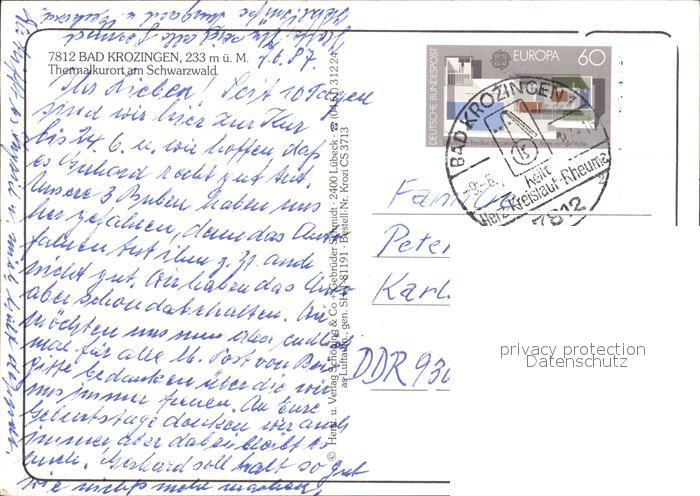 7812 BAD KROZINGEN, 233 m ü. M.
Thermalkurort am Schwarzwald
7.6.87.
Ihr Lieben! Seit 10 Tagen
sind wir hier zur Kur
bis 24.6. u. wir hoffen daß
es Gerhard recht gut tut.
Unsere 3 Buben haben uns
her gefahren, denn das Auto
fahren tut ihm z. Zt auch
nicht gut. Wir haben das Auto
aber schon dabehalten. Wir
möchten uns nun aber endlich
mal für alle lb. Post von
bedanken über die wir
uns immer freuen. An Eure
Geburtstage denken wir auch
immer aber dabei bleibt es
auch. Gerhard soll halt so gut
wie nichts mehr machen.
© Herst. u. Verlag Schöning & Co + Gebrüder Schmidt · 2400 Lübeck · ☎ (0451) 31224
as-Luftaufn., gen. SH-N 81191 · Bestell-Nr. Krozi CS 3713
DEUTSCHE BUNDESPOST
EUROPA 60
BAD KROZINGEN
heilt
Herz-Kreislauf-Rheuma
7812
Peter
DDR 930
privacy protection
Datenschutz